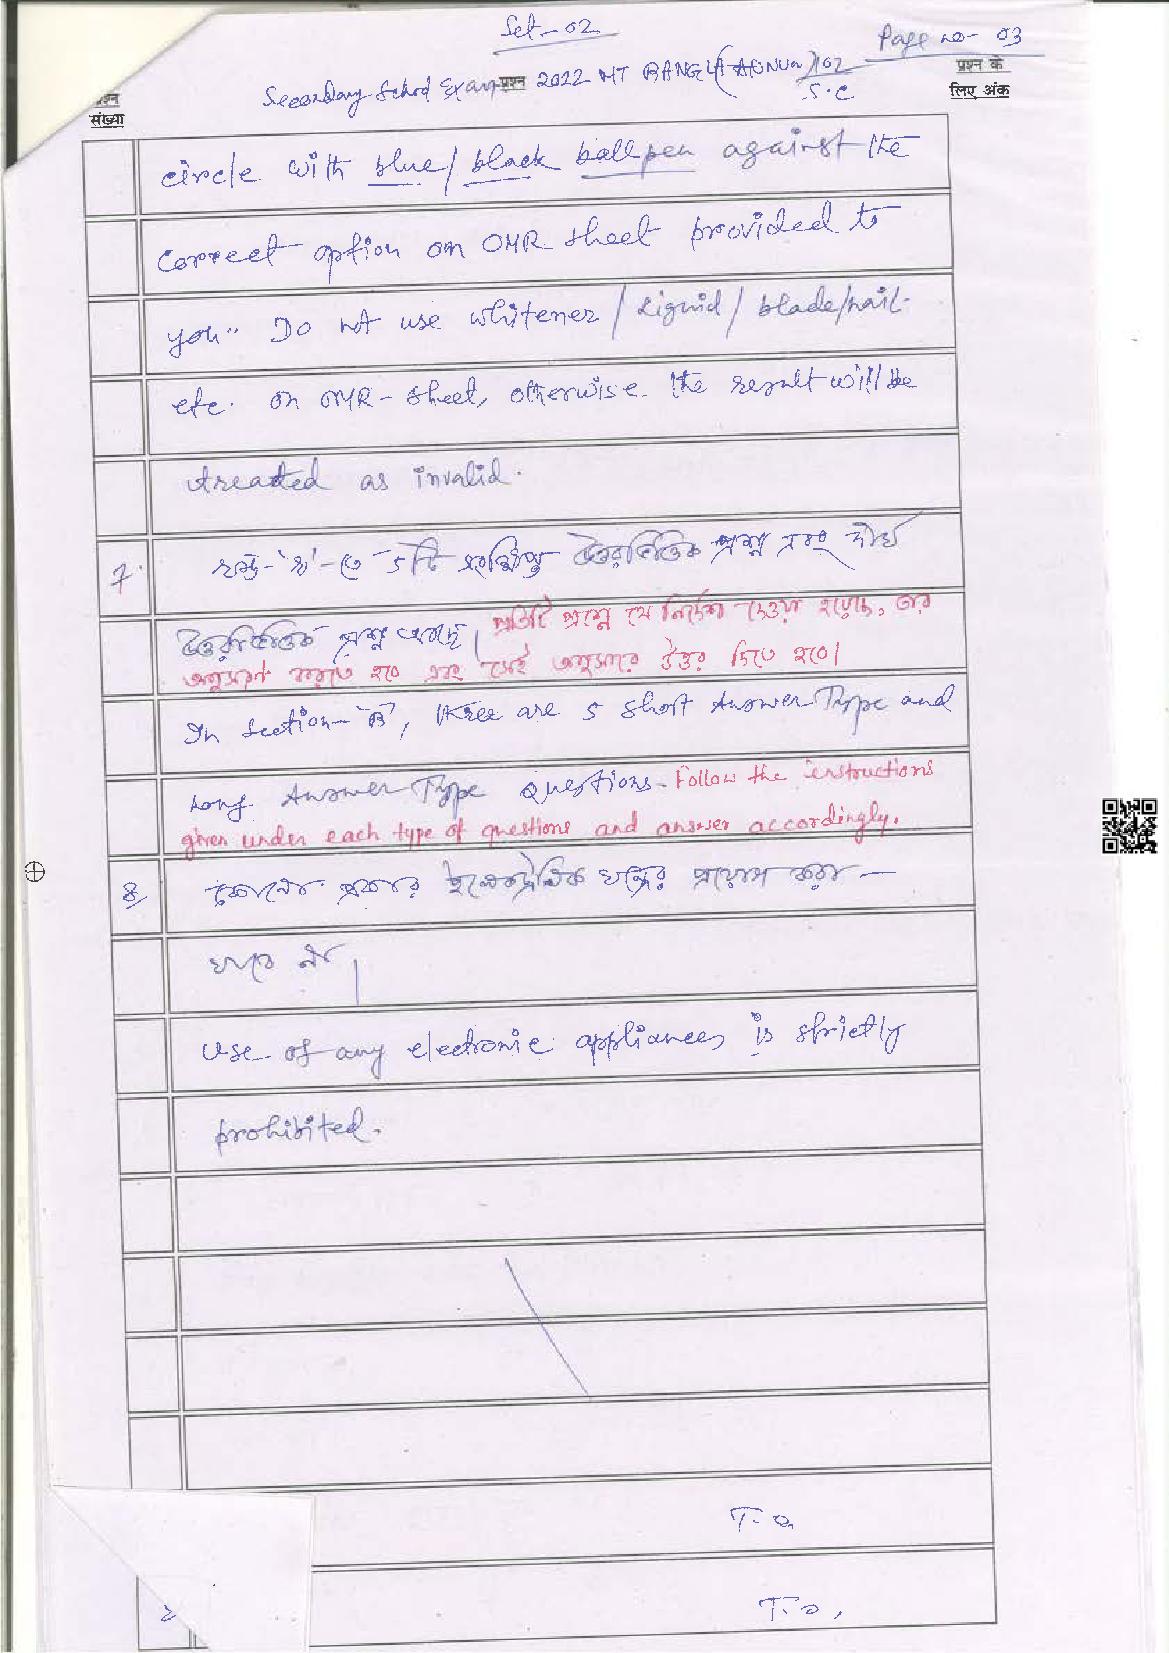 Set-02
Page no- 03
Secondary School Exam प्रश्न 2022 MT BANGLA (ANNUAL) 102
S.C
प्रश्न के
लिए अंक
प्रश्न
संख्या
circle with blue/black ballpen against the
correct option on OMR sheet provided to
you.. Do not use whitener/liquid/blade/nail.
etc. on OMR-sheet, otherwise the result will be
treated as invalid.
7. খণ্ড-'খ'-তে ৫টি সংক্ষিপ্ত উত্তরভিত্তিক প্রশ্ন এবং দীর্ঘ
উত্তরভিত্তিক প্রশ্ন আছে। প্রতিটি প্রশ্নে যে নির্দেশ দেওয়া হয়েছে, তার
অনুসরণ করতে হবে এবং সেই অনুসারে উত্তর দিতে হবে।
In Section-'B', there are 5 Short Answer Type and
Long Answer Type Questions. Follow the instructions
given under each type of questions and answer accordingly.
8. কোনো প্রকার ইলেকট্রনিক যন্ত্রের প্রয়োগ করা —
যাবে না।
Use of any electronic appliances is strictly
prohibited.
T.O,